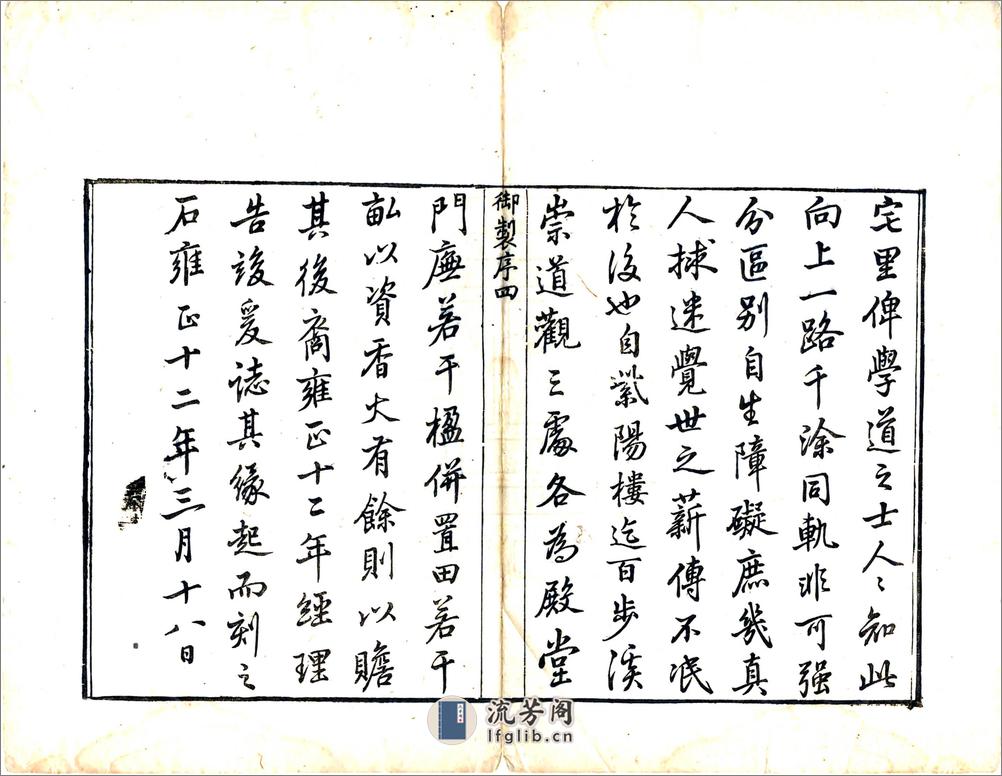 宅里俾學道之士人〻知此
向上一路千涂同軌非可强
分區别自生障礙庶幾真
人拯迷覺世之薪傳不泯
於後也自紫陽樓迄百步溪
崇道觀三處各為殿堂
御製序四
門廡若干楹併置田若干
畝以資香火有餘則以贍
其後裔雍正十二年經理
告竣爰誌其緣起而刻之
石雍正十二年三月十八日
流芳阁
lfglib.cn